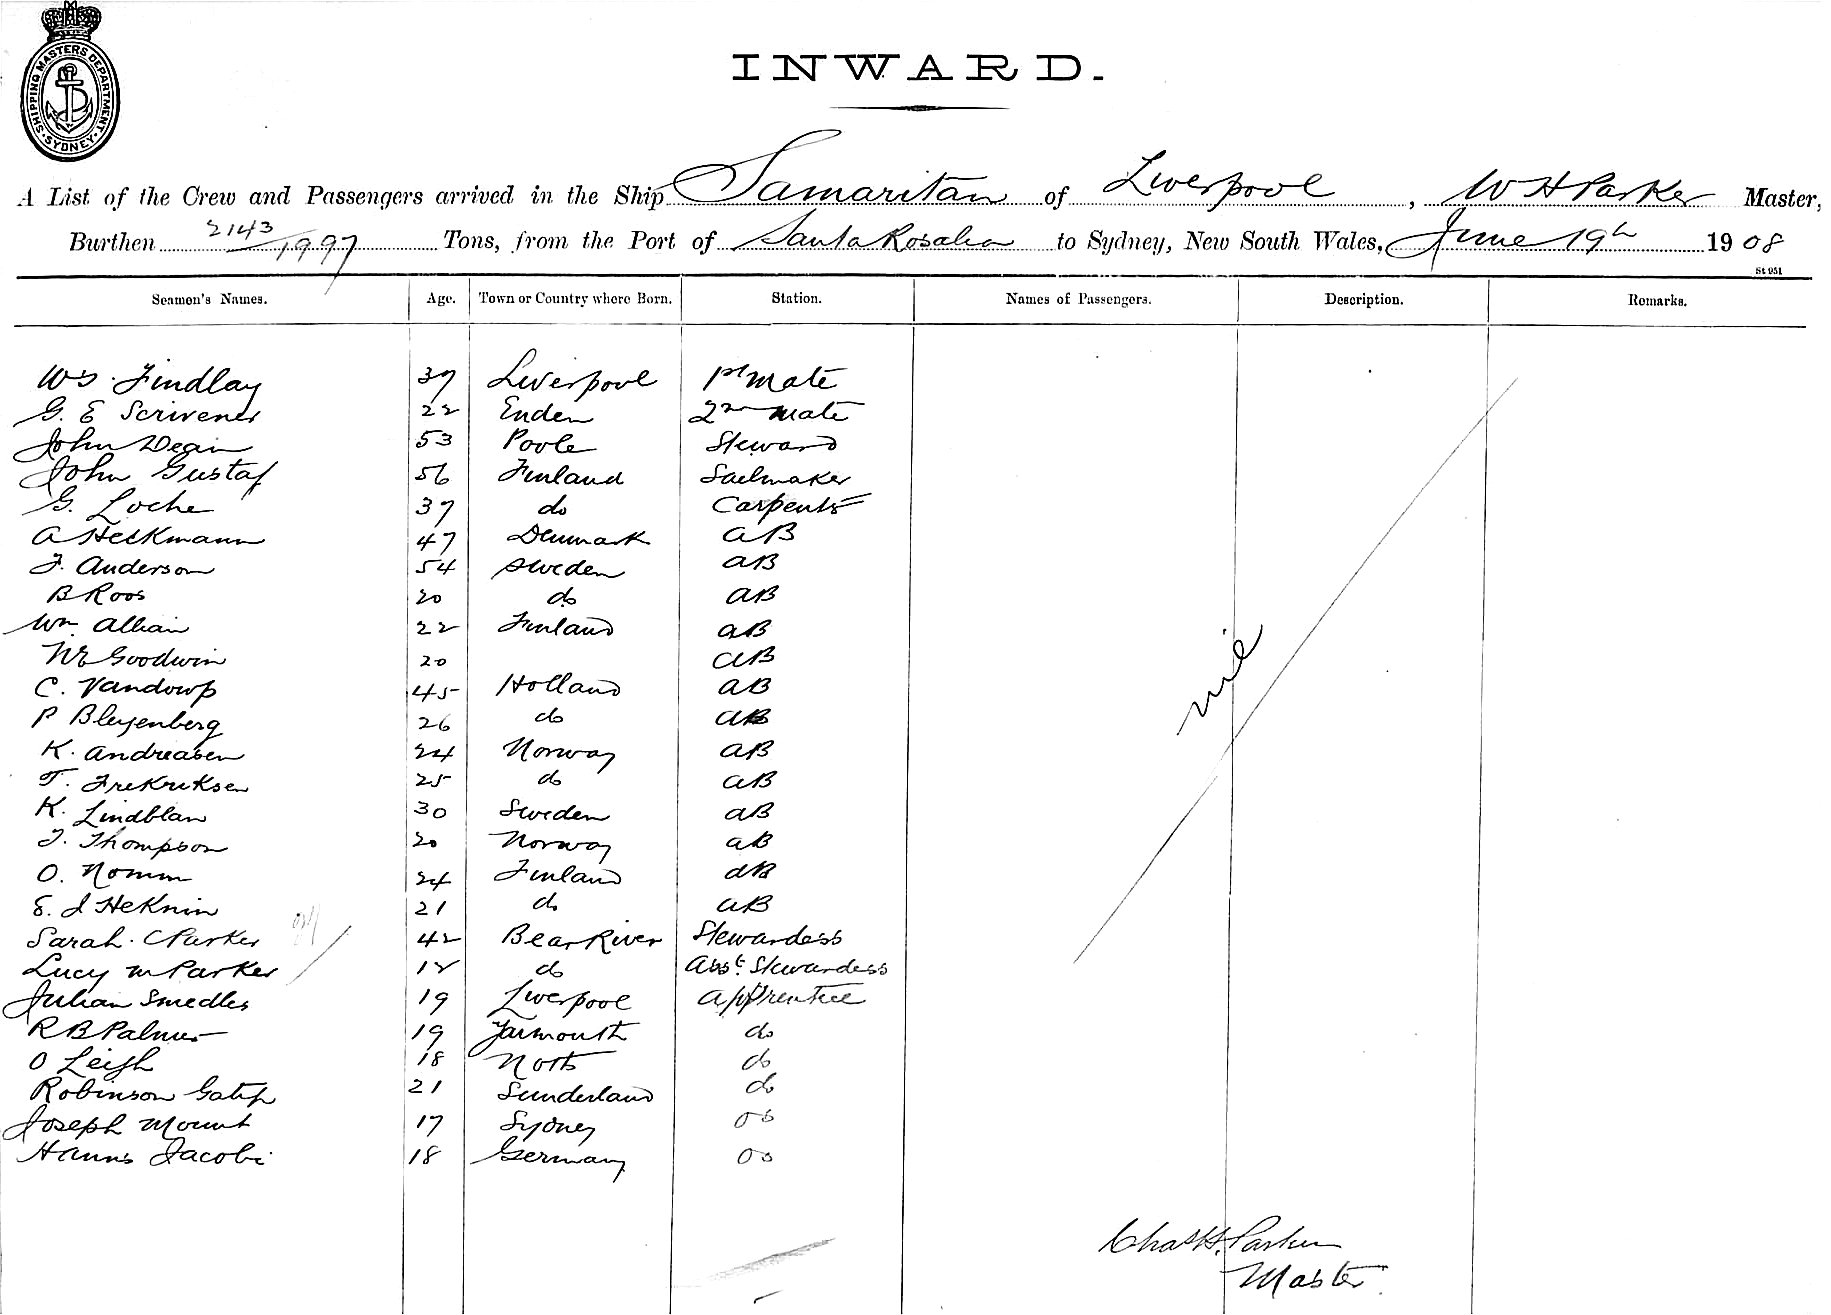 SHIPPING MASTERS DEPARTMENT
SYDNEY
INWARD.
A List of the Crew and Passengers arrived in the Ship Samaritan of Liverpool, WH Parker Master,
Burthen 2143/1997 Tons, from the Port of Santa Rosalia to Sydney, New South Wales, June 19th 1908
St 951
Seamen's Names. Age. Town or Country where Born. Station. Names of Passengers. Description. Remarks.
Findlay 37 Liverpool 1st Mate
G. E Scrivener 22 Enden 2nd Mate
John Dean 53 Poole Steward
John Gustaf 56 Finland Sailmaker
G. Loche 37 do Carpentr
A Heckmann 47 Denmark AB
J. Anderson 54 Sweden AB
B Roos 20 do AB
Wm Allian 22 Finland AB
Goodwin 20 AB
C. Vandowp 45 Holland AB
P Bleyenberg 26 do AB
K. Andreasen 24 Norway AB
T. Frekriksen 25 do AB
K. Lindblan 30 Sweden AB
J. Thompson 20 Norway AB
O. Nomm 24 Finland AB
E. J HeKnin 21 do AB
Sarah. C Parker 42 Bear River Stewardess
Lucy M Parker 12 do Asst. Stewardess
Julian Smedles 19 Liverpool Apprentice
R B Palmer 19 Yarmouth do
O Leigh 18 Notts do
Robinson 21 Sunderland do
Joseph Mount 17 Sydney OS
Hanns Jacobi 18 Germany OS
nil
Chas H. Parker
Master